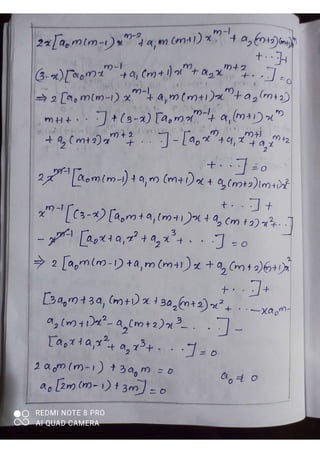 2x[a₀m(m-1)x^{m-2} + a₁m(m+1)x^{m-1} + a₂(m+2)(m+1)x^m
+ ...] +
(3-x)[a₀mx^{m-1} + a₁(m+1)x^m + a₂x^{m+2}
+ ...] = 0
⇒ 2[a₀m(m-1)x^{m-1} + a₁m(m+1)x^m + a₂(m+2)
m+1 + ...] + (3-x)[a₀mx^{m-1} + a₁(m+1)x^m
+ a₂(m+2)x^{m+2} + ...] - [a₀x^m + a₁x^{m+1} + a₂x^{m+2}
+ ...] = 0
2x^{m-1}[a₀m(m-1) + a₁m(m+1)x + a₂(m+2)(m+1)x²
+ ...] +
x^{m-1}[(3-x)[a₀m + a₁(m+1)x + a₂(m+2)x² + ...]
- x^{m-1}[a₀x + a₁x² + a₂x³ + ...] = 0
⇒ 2[a₀m(m-1) + a₁m(m+1)x + a₂(m+2)(m+1)x²
+ ...] +
[3a₀m + 3a₁(m+1)x + 3a₂(m+2)x² + ... - xa₀m -
a₂(m+1)x² - a₂(m+2)x³ - ...] -
[a₀x + a₁x² + a₂x³ + ...] = 0
2a₀m(m-1) + 3a₀m = 0
a₀[2m(m-1) + 3m] = 0 a₀ ≠ 0
REDMI NOTE 8 PRO
AI QUAD CAMERA